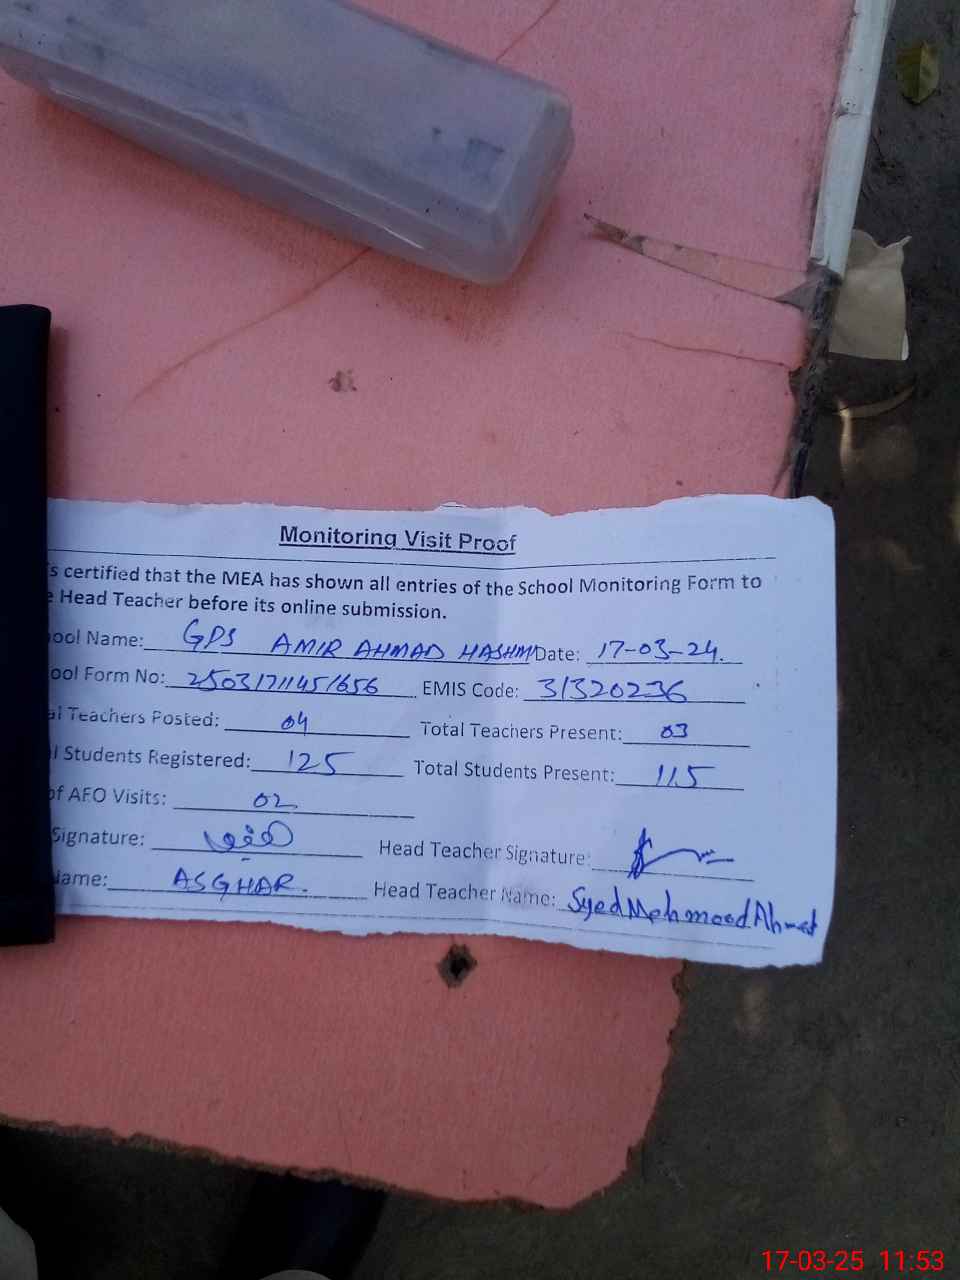 Monitoring Visit Proof
s certified that the MEA has shown all entries of the School Monitoring Form to
e Head Teacher before its online submission.
ool Name: GPS AMIR AHMAD HASHMI Date: 17-03-24.
ool Form No: 25031711451656 EMIS Code: 31320236
al Teachers Posted: 04 Total Teachers Present: 03
l Students Registered: 125 Total Students Present: 115
of AEO Visits: 02
Signature: Head Teacher Signature:
Name: ASGHAR. Head Teacher Name: Syed Mehmood Ahmad
17-03-25 11:53